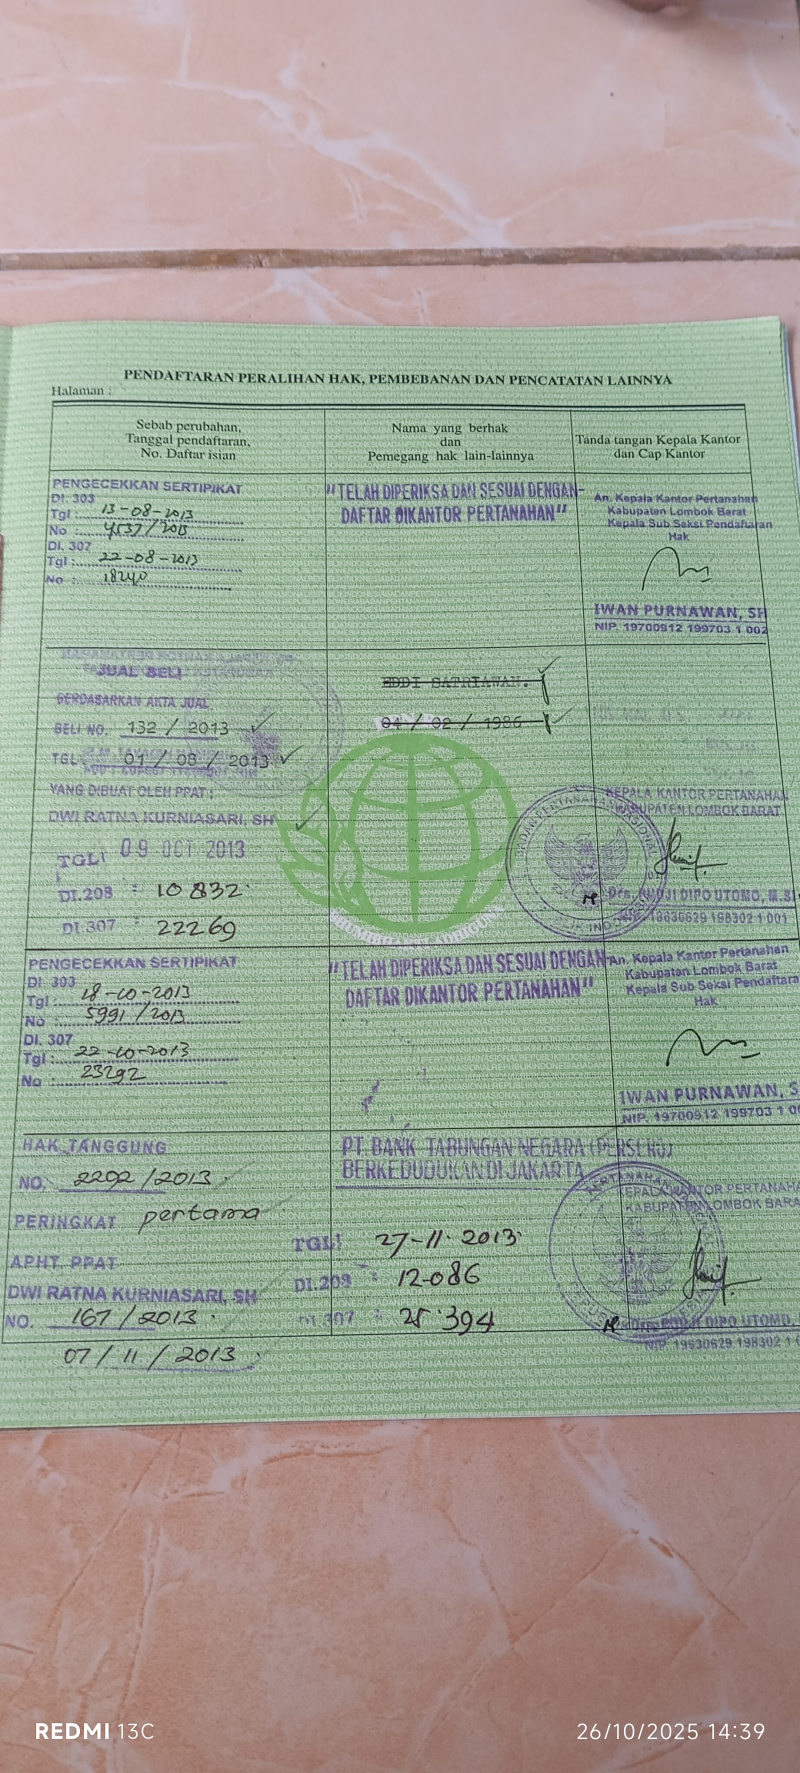 PENDAFTARAN PERALIHAN HAK, PEMBEBANAN DAN PENCATATAN LAINNYA
Halaman :
Sebab perubahan,
Tanggal pendaftaran,
No. Daftar isian
Nama yang berhak
dan
Pemegang hak lain-lainnya
Tanda tangan Kepala Kantor
dan Cap Kantor
PENGECEKKAN SERTIPIKAT
DI. 303
Tgl : 13-08-2013
No : 4537/2013
DI. 307
Tgl : 22-08-2013
No : 18240
"TELAH DIPERIKSA DAN SESUAI DENGAN
DAFTAR DIKANTOR PERTANAHAN"
An. Kepala Kantor Pertanahan
Kabupaten Lombok Barat
Kepala Sub Seksi Pendaftaran
Hak
IWAN PURNAWAN, SH
NIP. 19700912 199703 1 002
JUAL BELI
BERDASARKAN AKTA JUAL
BELI NO. 132 / 2013
TGL 01 / 08 / 2013
YANG DIBUAT OLEH PPAT :
DWI RATNA KURNIASARI, SH
TGL! 09 OCT 2013
DI.208 : 10832
DI.307 : 22269
EDDI SATRIAWAN.
04 / 02 / 1986
KEPALA KANTOR PERTANAHAN
KABUPATEN LOMBOK BARAT
Drs. PUDJI DIPO UTOMO, M.Si
19630629 198302 1 001
PENGECEKKAN SERTIPIKAT
DI. 303
Tgl : 18-10-2013
No : 5991/2013
DI. 307
Tgl : 22-10-2013
No : 23292
"TELAH DIPERIKSA DAN SESUAI DENGAN
DAFTAR DIKANTOR PERTANAHAN"
An. Kepala Kantor Pertanahan
Kabupaten Lombok Barat
Kepala Sub Seksi Pendaftara
Hak
IWAN PURNAWAN, S
NIP. 19700912 199703 1 00
HAK TANGGUNG
NO. 2292/2013
PERINGKAT pertama
APHT. PPAT
DWI RATNA KURNIASARI, SH
NO. 167/2013
07/11/2013
PT. BANK TABUNGAN NEGARA (PERSERO)
BERKEDUDUKAN DI JAKARTA
TGL! 27-11-2013
DI.208 : 12086
DI.307 : 25.394
KEPALA KANTOR PERTANAHA
KABUPATEN LOMBOK BARA
Drs. PUDJI DIPO UTOMO,
NIP. 19630629 198302 1 0
REDMI 13C
26/10/2025 14:39